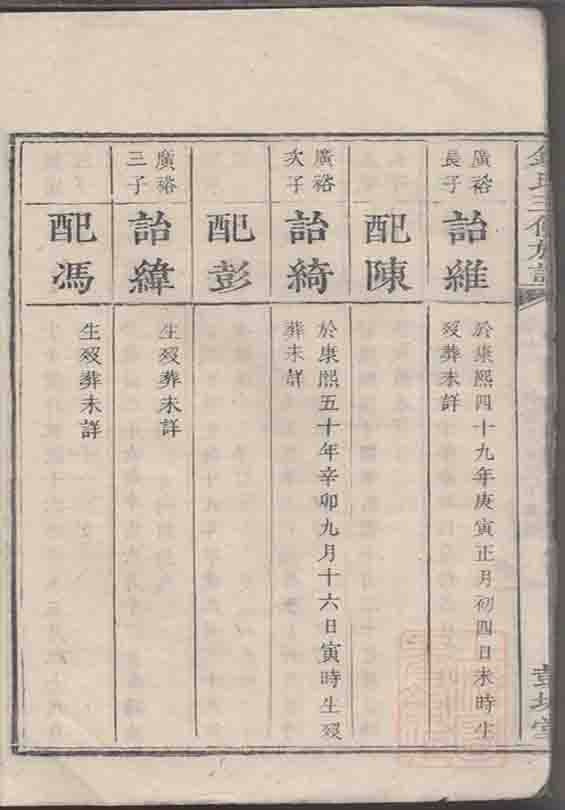 廣裕
長子
詒維
於康熙四十九年庚寅正月初四日未時生
歿葬未詳
配陳
廣裕
次子
詒綺
於康熙五十年辛卯九月十六日寅時生歿
葬未詳
配彭
廣裕
三子
詒緯
生歿葬未詳
配馮
生歿葬未詳